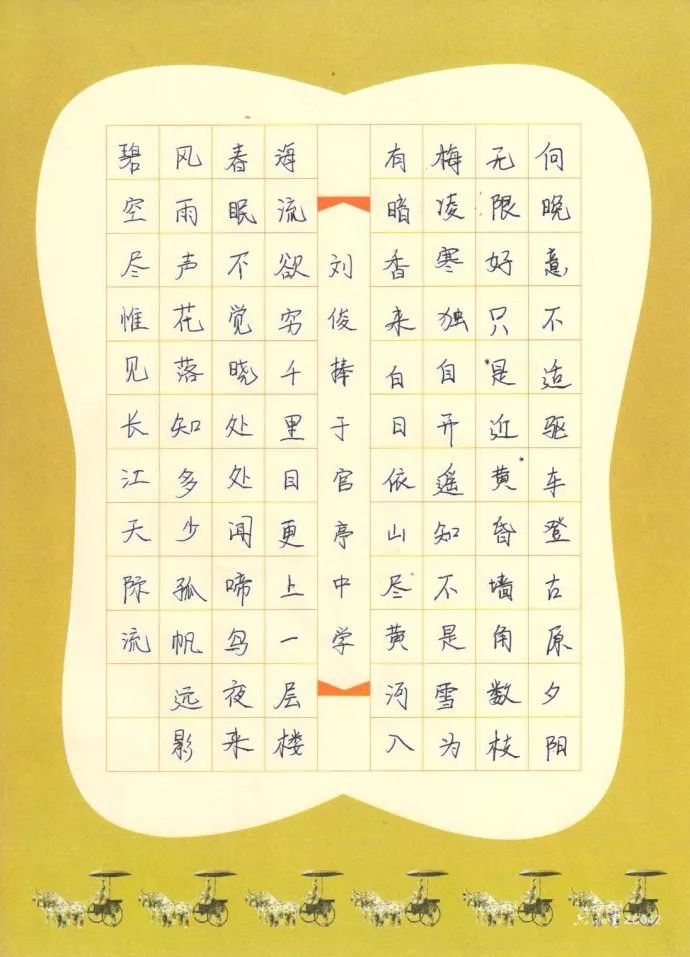 向晚意不适驱车登古原夕阳
无限好只是近黄昏墙角数枝
梅凌寒独自开遥知不是雪为
有暗香来白日依山尽黄河入
刘俊捧于官亭中学
海流欲穷千里目更上一层楼
春眠不觉晓处处闻啼鸟夜来
风雨声花落知多少孤帆远影
碧空尽惟见长江天际流